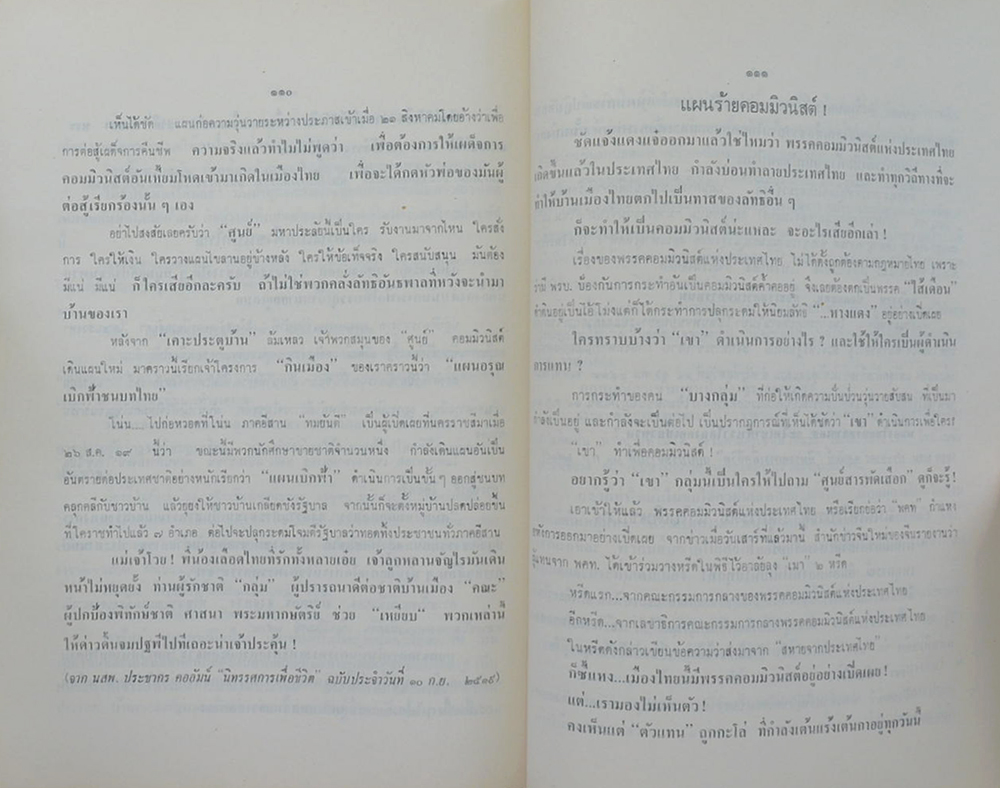 ๑๑๐
เห็นได้ชัด แผนก่อความวุ่นวายระหว่างประภาสเข้าเมื่อ ๒๑ สิงหาคมโดยอ้างว่าเพื่อ
การต่อสู้เผด็จการคืนชีพ ความจริงแล้วทำไมไม่พูดว่า เพื่อต้องการให้เผด็จการ
คอมมิวนิสต์อันเหี้ยมโหดเข้ามาเกิดในเมืองไทย เพื่อจะได้กดหัวพ่อของมันผู้
ต่อสู้เรียกร้องนั้น ๆ เอง
อย่าไปสงสัยเลยครับว่า “ศูนย์” มหาประลัยนี้เป็นใคร รับงานมาจากไหน ใครสั่ง
การ ใครให้เงิน ใครวางแผนไขลานอยู่ข้างหลัง ใครให้ข้อเท็จจริง ใครสนับสนุน มันต้อง
มีแน่ มีแน่ ก็ใครเสียอีกละครับ ถ้าไม่ใช่พวกคลั่งลัทธิอันธพาลที่หวังจะนำมา
บ้านของเรา
หลังจาก “เคาะประตูบ้าน” ล้มเหลว เจ้าพวกสมุนของ “ศูนย์” คอมมิวนิสต์
เดินแผนใหม่ มาคราวนี้เรียกเจ้าโครงการ “กินเมือง” ของเราคราวนี้ว่า “แผนอรุณ
เบิกฟ้าชนบทไทย”
โน่น.....ไปก่อหวอดที่โน่น ภาคอีสาน “ทมยันตี” เป็นผู้เปิดเผยที่นครราชสีมาเมื่อ
๒๖ ส.ค. ๑๙ นี้ว่า ขณะนี้มีพวกนักศึกษาขายชาติจำนวนหนึ่ง กำลังเดินแผนอันเป็น
อันตรายต่อประเทศชาติอย่างหนักเรียกว่า “แผนเบิกฟ้า” ดำเนินการเป็นขั้น ๆ ออกสู่ชนบท
คลุกคลีกับชาวบ้าน แล้วยุยงให้ชาวบ้านเกลียดชังรัฐบาล จากนั้นก็จะตั้งหมู่บ้านปลดปล่อยขึ้น
ที่โคราชทำไปแล้ว ๗ อำเภอ ต่อไปจะปลุกระดมโจมตีรัฐบาลว่าทอดทิ้งประชาชนทั่วภาคอีสาน
แม่เจ้าโวย! พี่น้องเลือดไทยที่รักทั้งหลายเอ๋ย เจ้าลูกหลานจัญไรมันเดิน
หน้าไม่หยุดยั้ง ท่านผู้รักชาติ “กลุ่ม” ผู้ปรารถนาดีต่อชาติบ้านเมือง “คณะ”
ผู้ปกป้องพิทักษ์ชาติ ศาสนา พระมหากษัตริย์ ช่วย “เหยียบ” พวกเหล่านี้
ให้ด่าวดิ้นจมปฐพีไปทีเถอะน่าเจ้าประคุ้น!
(จาก นสพ. ประชากร คออัมน์ “นิทรรศการเพื่อชีวิต” ฉบับประจำวันที่ ๑๐ ก.ย. ๒๕๑๙)
๑๑๑
แผนร้ายคอมมิวนิสต์!
ชัดแจ้งแดงแจ๋ออกมาแล้วใช่ไหมว่า พรรคคอมมิวนิสต์แห่งประเทศไทย
เกิดขึ้นแล้วในประเทศไทย กำลังบ่อนทำลายประเทศไทย และทำทุกวิถีทางที่จะ
ทำให้บ้านเมืองไทยตกไปเป็นทาสของลัทธิอื่น ๆ
ก็จะทำให้เป็นคอมมิวนิสต์น่ะแหละ จะอะไรเสียอีกเล่า!
เรื่องของพรรคคอมมิวนิสต์แห่งประเทศไทย ไม่ได้ตั้งถูกต้องตามกฎหมายไทย เพราะ
เรามี พรบ. ป้องกันการกระทำอันเป็นคอมมิวนิสต์ค้ำคออยู่ จึงเลยต้องตกเป็นพรรค “ไส้เดือน”
ดำดินอยู่เป็นไอ้โม่งแต่ก็ได้กระทำการปลุกระดมให้นิยมลัทธิ “..ทางแดง” อยู่อย่างเปิดเผย
ใครทราบบ้างว่า “เขา” ดำเนินการอย่างไร? และใช้ให้ใครเป็นผู้ดำเนิน
การแทน?
การกระทำของคน “บางกลุ่ม” ที่ก่อให้เกิดความปั่นป่วนวุ่นวายสับสน ที่เป็นมา
กำลังเป็นอยู่ และกำลังจะเป็นต่อไป เป็นปรากฏการณ์ที่เห็นได้ชัดว่า “เขา” ดำเนินการเพื่อใคร?
“เขา” ทำเพื่อคอมมิวนิสต์!
อยากรู้ว่า “เขา” กลุ่มนี้เป็นใครให้ไปถาม “ศูนย์สารพัดเสือก” ดูก็จะรู้!
เอาเข้าให้แล้ว พรรคคอมมิวนิสต์แห่งประเทศไทย หรือเรียกย่อว่า “พคท” กำแหง
หลังการออกมาอย่างเปิดเผย จากข่าวเมื่อวันเสาร์ที่แล้วมานี้ สำนักข่าวจีนใหม่ของจีนรายงานว่า
ผู้แทนจาก พคท. ได้เข้าร่วมวางหรีดในพิธีไว้อาลัยลุง “เมา” ๒ หรีด
หรีดแรก...จากคณะกรรมการกลางของพรรคคอมมิวนิสต์แห่งประเทศไทย
อีกหรีด...จากเลขาธิการคณะกรรมการกลางพรรคคอมมิวนิสต์แห่งประเทศไทย
ในหรีดดังกล่าวเขียนข้อความว่าส่งมาจาก “สหายจากประเทศไทย”
ก็ชี้แหง...เมืองไทยนี้มีพรรคคอมมิวนิสต์อยู่อย่างเปิดเผย!
แต่...เรามองไม่เห็นตัว!
คงเห็นแต่ “ตัวแทน” ลูกกะโล่ ที่กำลังเต้นแร้งเต้นกาอยู่ทุกวันนี้